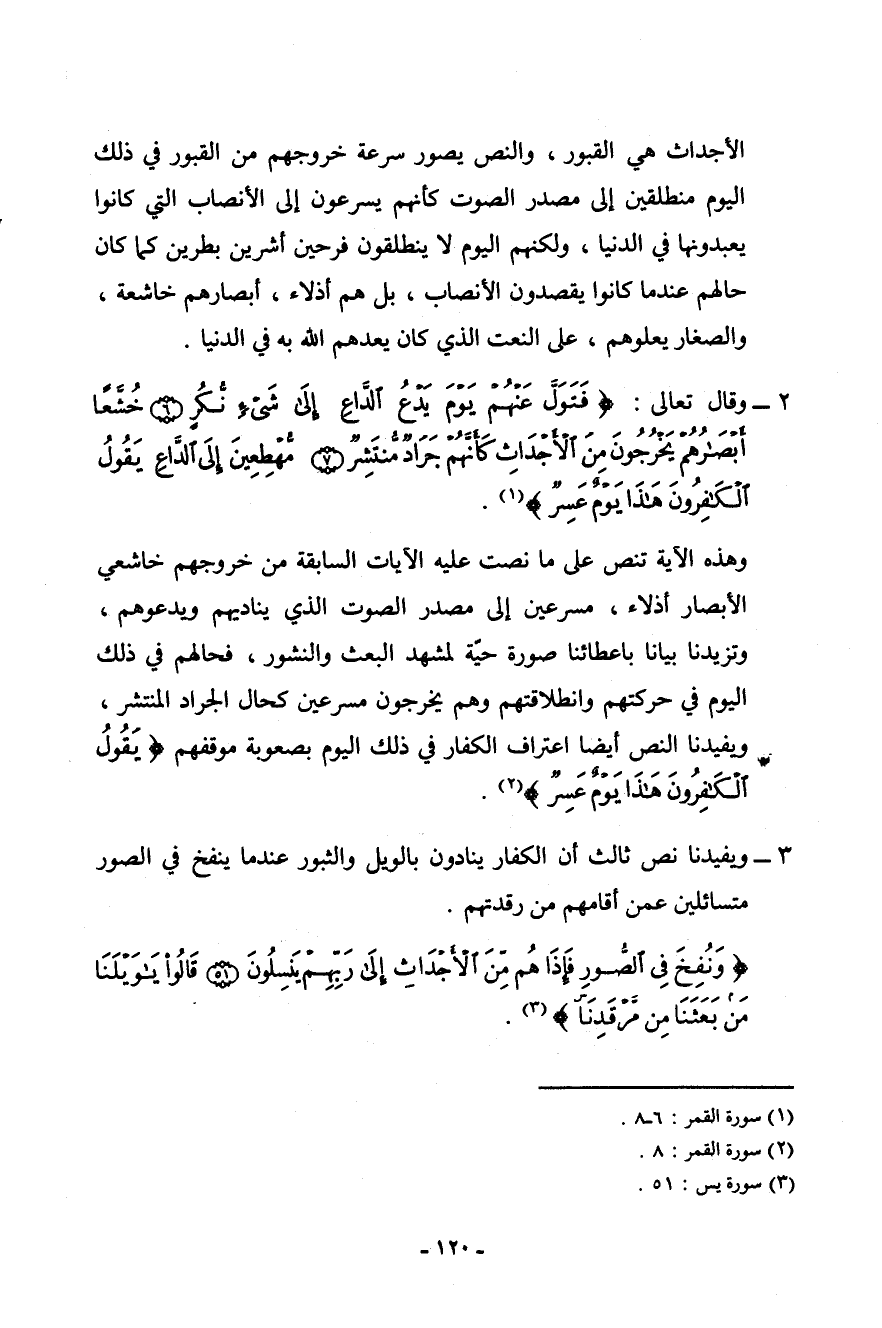 الأجداث هي القبور ، والنص يصور سرعة خروجهم من القبور في ذلك
اليوم منطلقين إلى مصدر الصوت كأنهم يسرعون إلى الأنصاب التي كانوا
يعبدونها في الدنيا ، ولكنهم اليوم لا ينطلقون فرحين أشرين بطرين كما كان
حالهم عندما كانوا يقصدون الأنصاب ، بل هم أذلاء ، أبصارهم خاشعة ،
والصغار يعلوهم ، على النعت الذي كان يعدهم الله به في الدنيا .
٢ ــ وقال تعالى : ﴿ فَتَوَلَّ عَنْهُمْ يَوْمَ يَدْعُ ٱلدَّاعِ إِلَىٰ شَىْءٍ نُّكُرٍ ۝٦ خُشَّعًا
أَبْصَٰرُهُمْ يَخْرُجُونَ مِنَ ٱلْأَجْدَاثِ كَأَنَّهُمْ جَرَادٌ مُّنتَشِرٌ ۝٧ مُّهْطِعِينَ إِلَى ٱلدَّاعِ يَقُولُ
ٱلْكَٰفِرُونَ هَٰذَا يَوْمٌ عَسِرٌ ﴾(١) .
وهذه الآية تنص على ما نصت عليه الآيات السابقة من خروجهم خاشعي
الأبصار أذلاء ، مسرعين إلى مصدر الصوت الذي يناديهم ويدعوهم ،
وتزيدنا بيانا باعطائنا صورة حيّة لمشهد البعث والنشور ، فحالهم في ذلك
اليوم في حركتهم وانطلاقتهم وهم يخرجون مسرعين كحال الجراد المنتشر ،
ويفيدنا النص أيضا اعتراف الكفار في ذلك اليوم بصعوبة موقفهم ﴿ يَقُولُ
ٱلْكَٰفِرُونَ هَٰذَا يَوْمٌ عَسِرٌ ﴾(٢) .
٣ ــ ويفيدنا نص ثالث أن الكفار ينادون بالويل والثبور عندما ينفخ في الصور
متسائلين عمن أقامهم من رقدتهم .
﴿ وَنُفِخَ فِى ٱلصُّورِ فَإِذَا هُم مِّنَ ٱلْأَجْدَاثِ إِلَىٰ رَبِّهِمْ يَنسِلُونَ ۝٥١ قَالُوا۟ يَٰوَيْلَنَا
مَنۢ بَعَثَنَا مِن مَّرْقَدِنَا ﴾(٣) .
(١) سورة القمر : ٦ـ٨ .
(٢) سورة القمر : ٨ .
(٣) سورة يس : ٥١ .
ـ ١٢٠ ـ